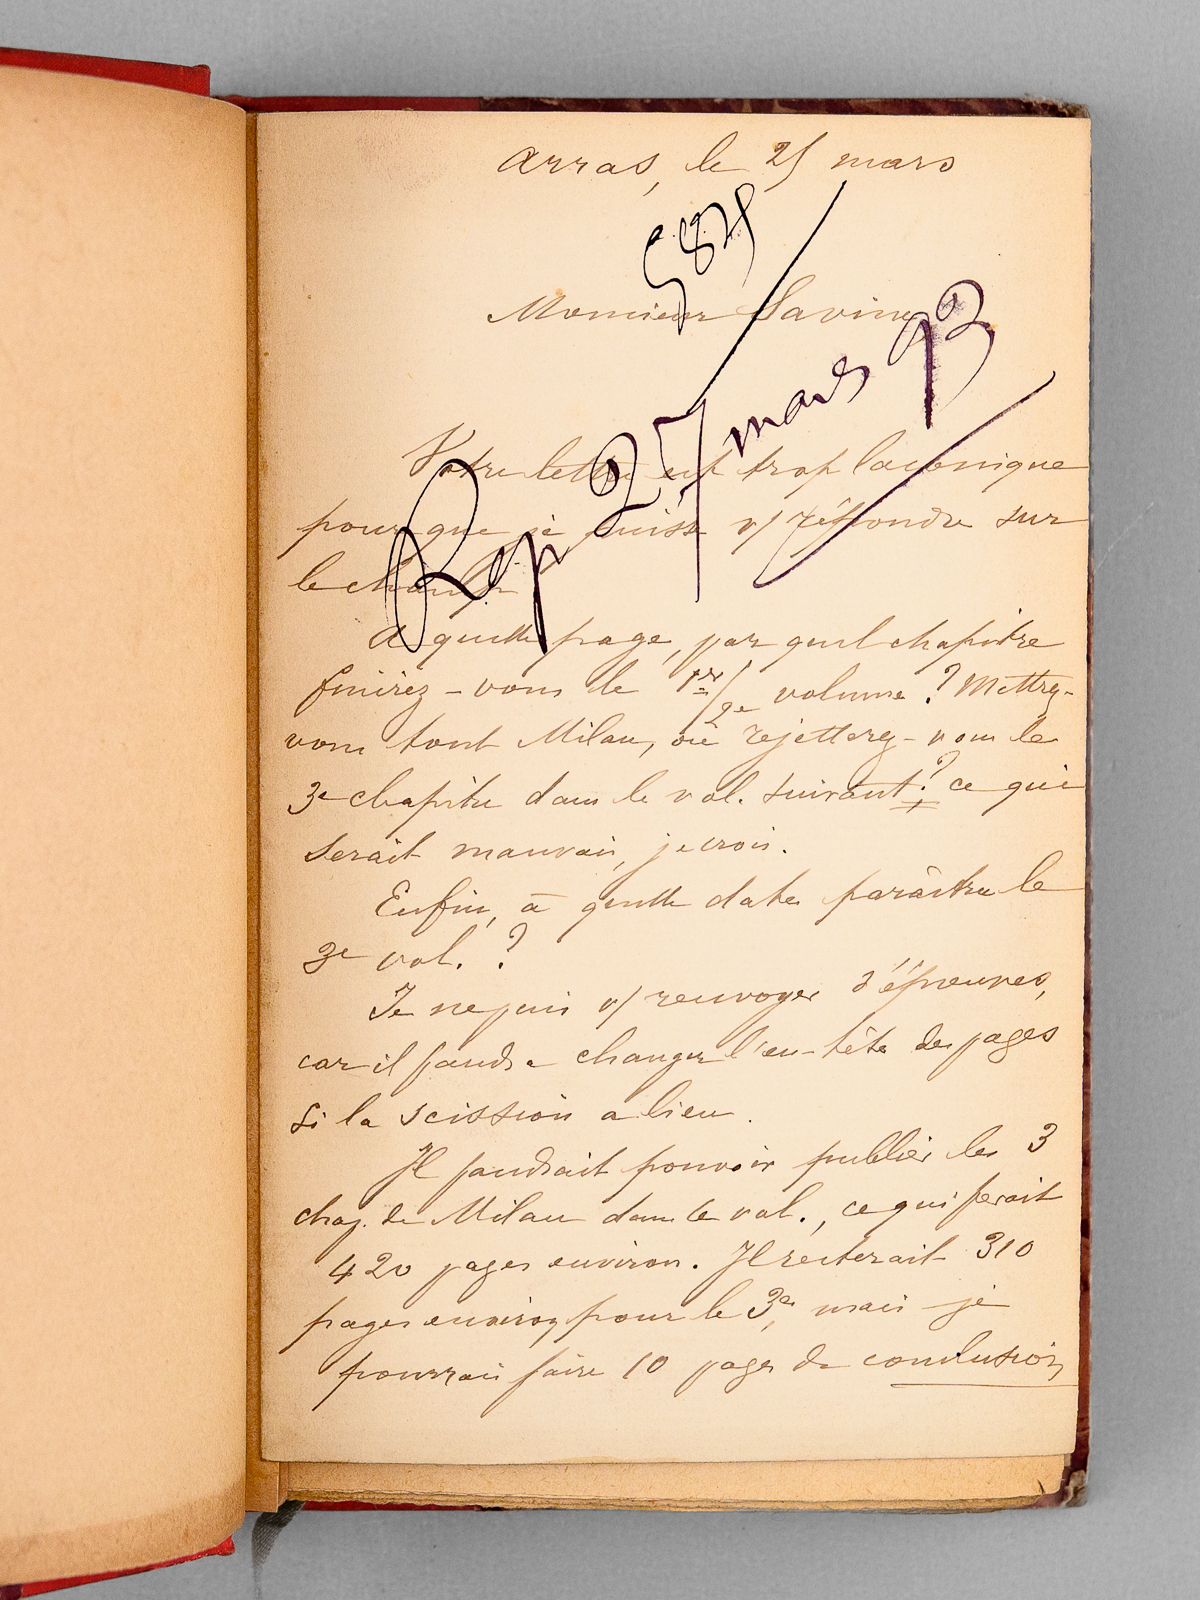 Arras, le 25 mars
Monsieur Savine
Rep 27 mars 93
Votre lettre est trop laconique
pour que je puisse v/ répondre sur
le champ
A quelle page, par quel chapitre
finirez-vous le 1er/2e volume ? Mettrez-
vous tout Milan, ou rejetterez-vous le
3e chapitre dans le vol. suivant ? ce qui
serait mauvais, je crois.
Enfin, à quelle date paraîtra le
3e vol. ?
Je ne puis v/ renvoyer d'épreuves,
car il faudra changer l'en-tête des pages
si la scission a lieu.
Il faudrait pouvoir publier les 3
chap. de Milan dans le vol., ce qui ferait
420 pages environ. Il resterait 310
pages environ pour le 3e, mais je
pourrai faire 10 pages de conclusion,